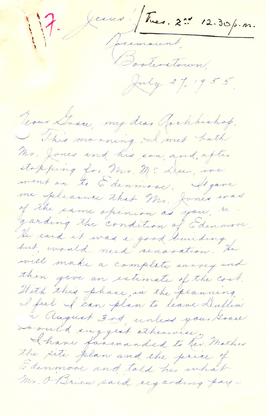 7.
Jesus!
Tues. 2nd 12.30 p.m.
Rosemount,
Booterstown,
July 27, 1955
Your Grace, my dear Archbishop,
This morning, I met both
Mr. Jones and his son, and, after
stopping for Mr. we
went on to Edenmore. It gave
me pleasure that Mr. Jones was
of the same opinion as you, re
garding the condition of Edenmore.
He said it was a good building
but would need renovation. He
will make a complete survey and
then give an estimate of the cost.
With this phase in the planning
I feel I can plan to leave Dublin
on August 3rd unless your Grace
would suggest otherwise.
I have forwarded to Mother
the site plan and the price of
Edenmore and told her what
Mr. O'Brien said regarding pay-